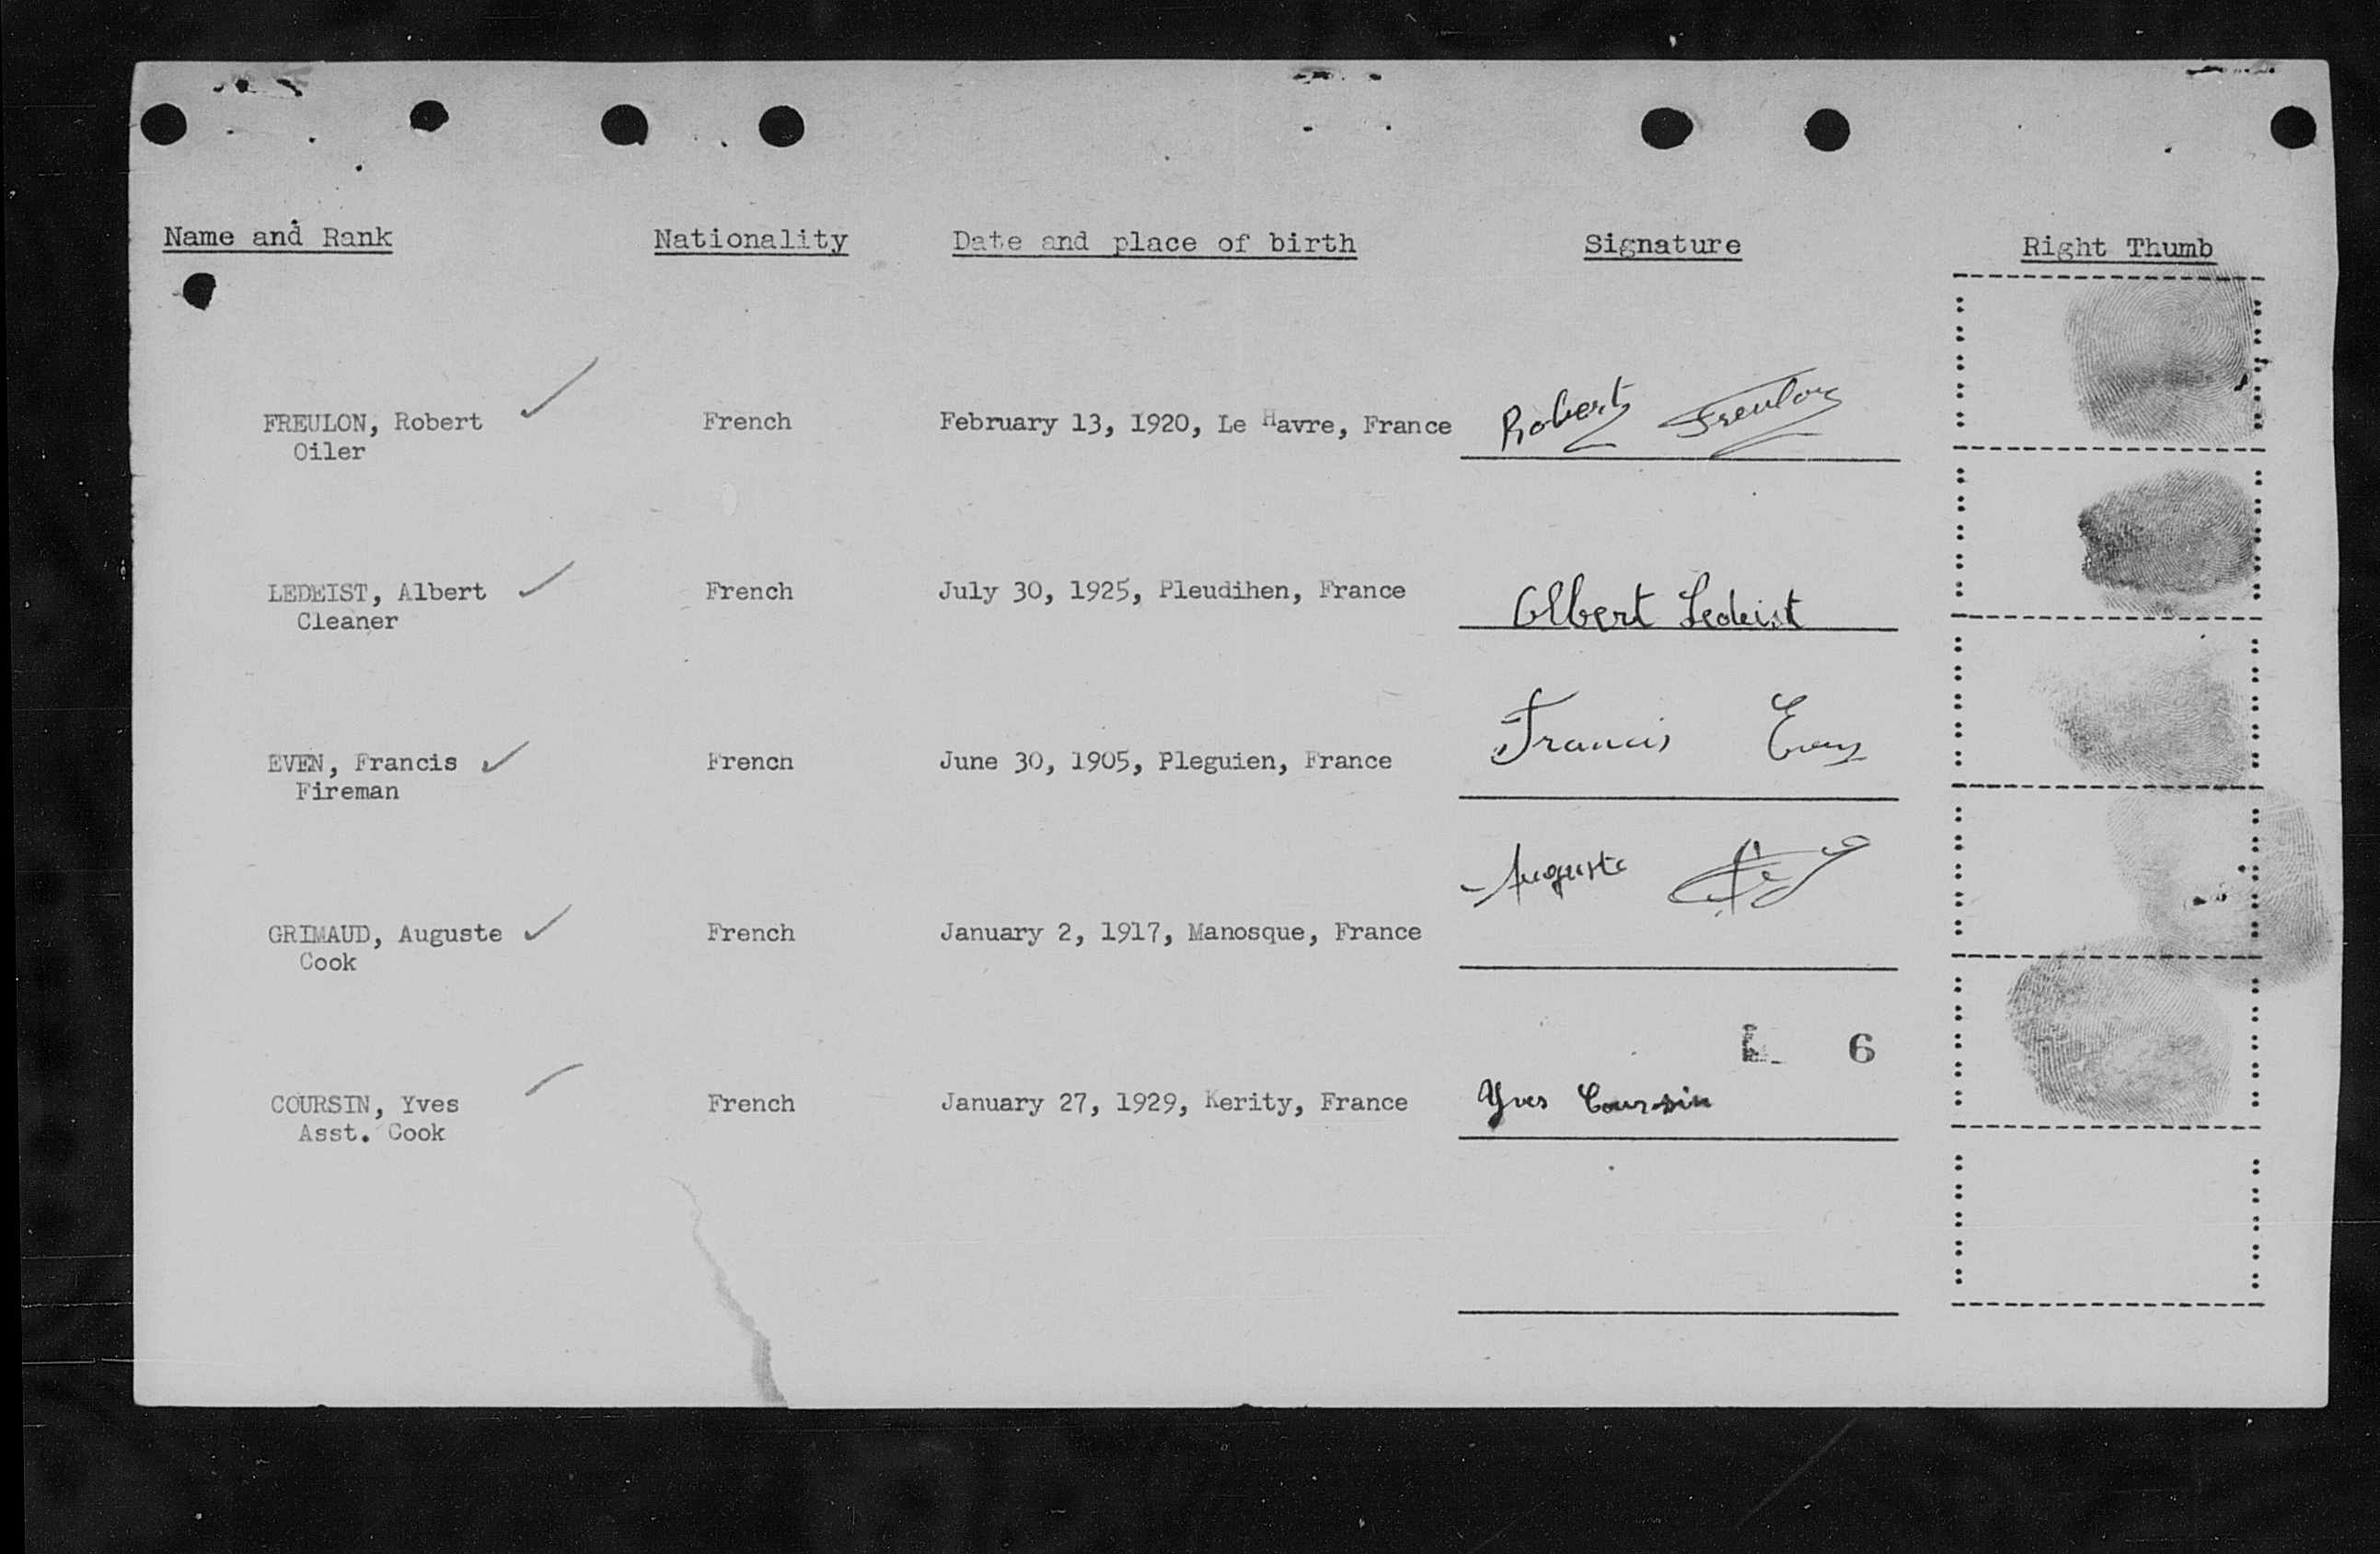 Name and Rank Nationality Date and place of birth Signature Right Thumb
FREULON, Robert French February 13, 1920, Le Havre, France Robert Freulon
Oiler
LEDEIST, Albert French July 30, 1925, Pleudihen, France Albert Ledeist
Cleaner
EVEN, Francis French June 30, 1905, Pleguien, France Francis Even
Fireman
Auguste
GRIMAUD, Auguste French January 2, 1917, Manosque, France
Cook
6
COURSIN, Yves French January 27, 1929, Kerity, France Yves Coursin
Asst. Cook